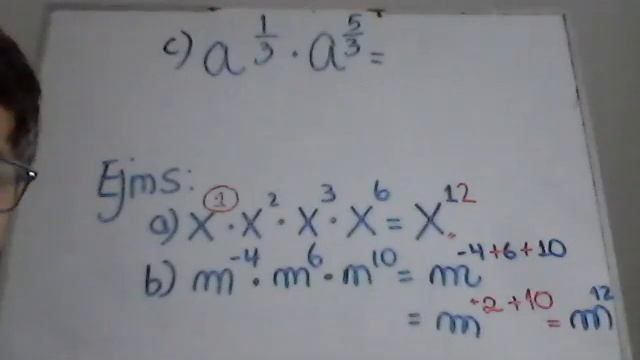 c) a^{1/3} · a^{5/3} =
Ejms:
a) x^{1} · x^{2} · x^{3} · x^{6} = x^{12}.
b) m^{-4} · m^{6} · m^{10} = m^{-4+6+10}
= m^{+2+10} = m^{12}